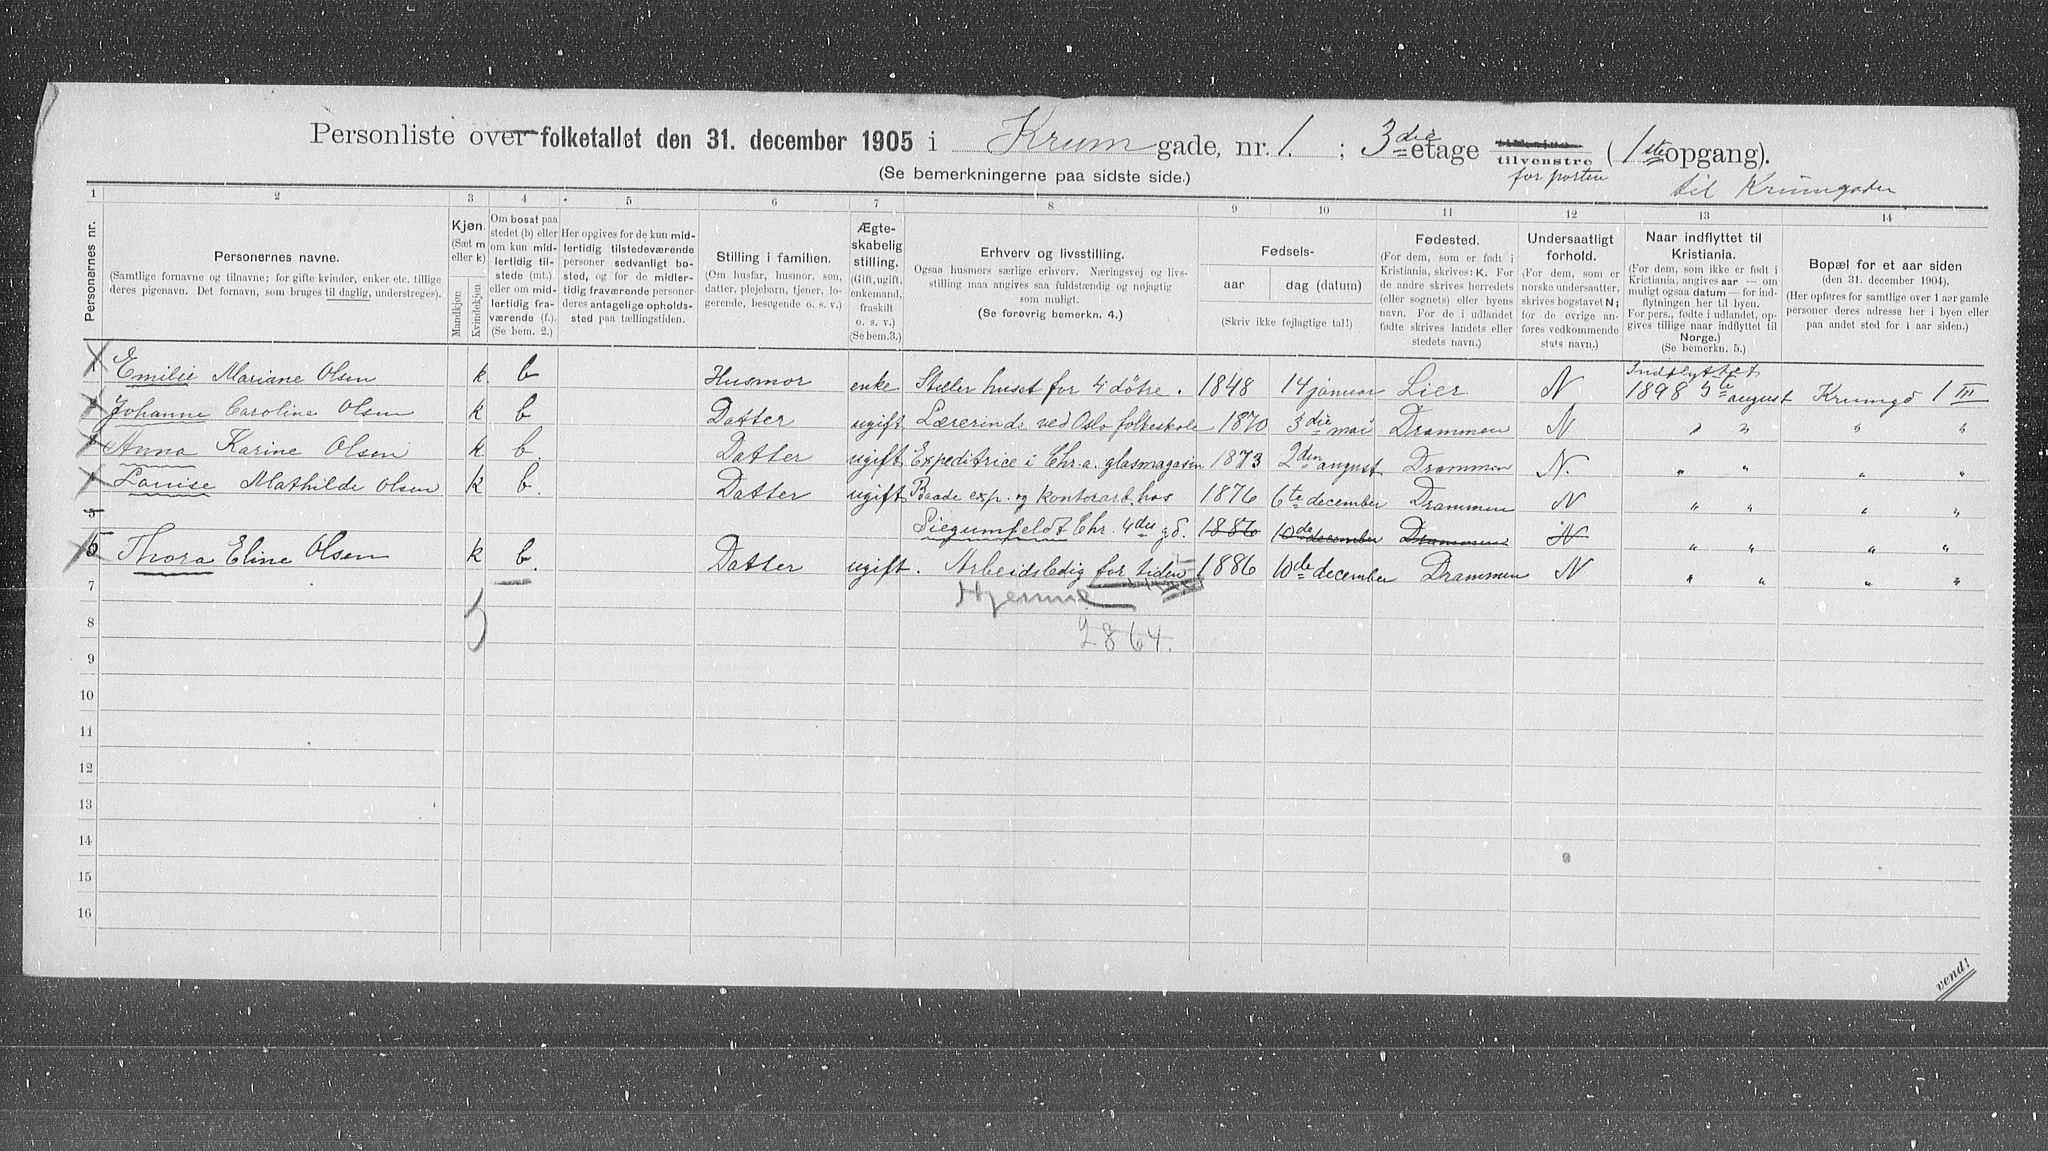 Personliste over folketallet den 31. december 1905 i Krum gade, nr. 1. ; 3die etage tilvenstre (1ste opgang).
for porten
(Se bemerkningerne paa sidste side.)
til Krumgaden
1 2 3 4 5 6 7 8 9 10 11 12 13 14
Personernes nr.
Personernes navne.
(Samtlige fornavne og tilnavne; for gifte kvinder, enker etc. tillige
deres pigenavn. Det fornavn, som bruges til daglig, understreges).
Kjøn.
(Sæt m
eller k)
Mandkjøn
Kvindekjøn
Om bosat paa
stedet (b) eller
om kun mid-
lertidig til-
stede (mt.)
eller om mid-
lertidig fra-
værende (f.).
(Se bem. 2.)
Her opgives for de kun mid-
lertidig tilstedeværende
personer sedvanligt bo-
sted, og for de midler-
tidig fraværende personer
deres antagelige opholds-
sted paa tællingstiden.
Stilling i familien.
(Om husfar, husmor, søn,
datter, plejebarn, tjener, lo-
gerende, besøgende o. s. v.)
Ægte-
skabelig
stilling.
(Gift, ugift,
enkemand,
fraskilt
o. s. v.)
(Se bem.3.)
Erhverv og livsstilling.
Ogsaa husmors særlige erhverv. Næringsvej og livs-
stilling maa angives saa fuldstændig og nøjagtig
som muligt.
(Se forøvrig bemerkn. 4.)
Fødsels-
aar dag (datum)
(Skriv ikke fejlagtige tal!)
Fødested.
(For dem, som er født i
Kristiania, skrives: K. For
de andre skrives herredets
(eller sognets) eller byens
navn. For de i udlandet
fødte skrives landets eller
stedets navn.)
Undersaatligt
forhold.
(For dem, som er
norske undersaatter,
skrives bogstavet N;
for de øvrige an-
føres vedkommende
stats navn.)
Naar indflyttet til
Kristiania.
(For dem, som ikke er født i
Kristiania, angives aar — om
muligt ogsaa datum — for ind-
flytningen her til byen.
For pers., fødte i udlandet, op-
gives tillige naar indflyttet til
Norge.)
(Se bemerkn. 5.)
Bopæl for et aar siden
(den 31. december 1904).
(Her opføres for samtlige over 1 aar gamle
personer deres adresse her i byen eller
paa andet sted for 1 aar siden.)
Indflyttet
1 Emilie Mariane Olsen k. b Husmor enke Steller huset for 4 døtre. 1848 14 januar Lier N 1898 5te august Krumgd 1 III
2 Johanne Caroline Olsen k b Datter ugift Lærerinde ved Oslo folkeskole 1870 3die mai Drammen N " " " "
3 Anna Karine Olsen k b. Datter ugift Expeditrice i Chr.a. glasmagasin 1873 2den august Drammen N. " " " "
4 Louise Mathilde Olsen k b. Datter ugift Baade exp. og kontorart. hos 1876 6te december Drammen N " " " "
5 Siegumfeldt Chr. 4des gd. 1886 10de december Drammen N " " " "
6 5 Thora Eline Olsen k b. Datter ugift. Arbeidsledig for tiden 1886 10de december Drammen N " " " "
7 Hjemme
5
8 2864.
9
10
11
12
13
14
15
16
vend!